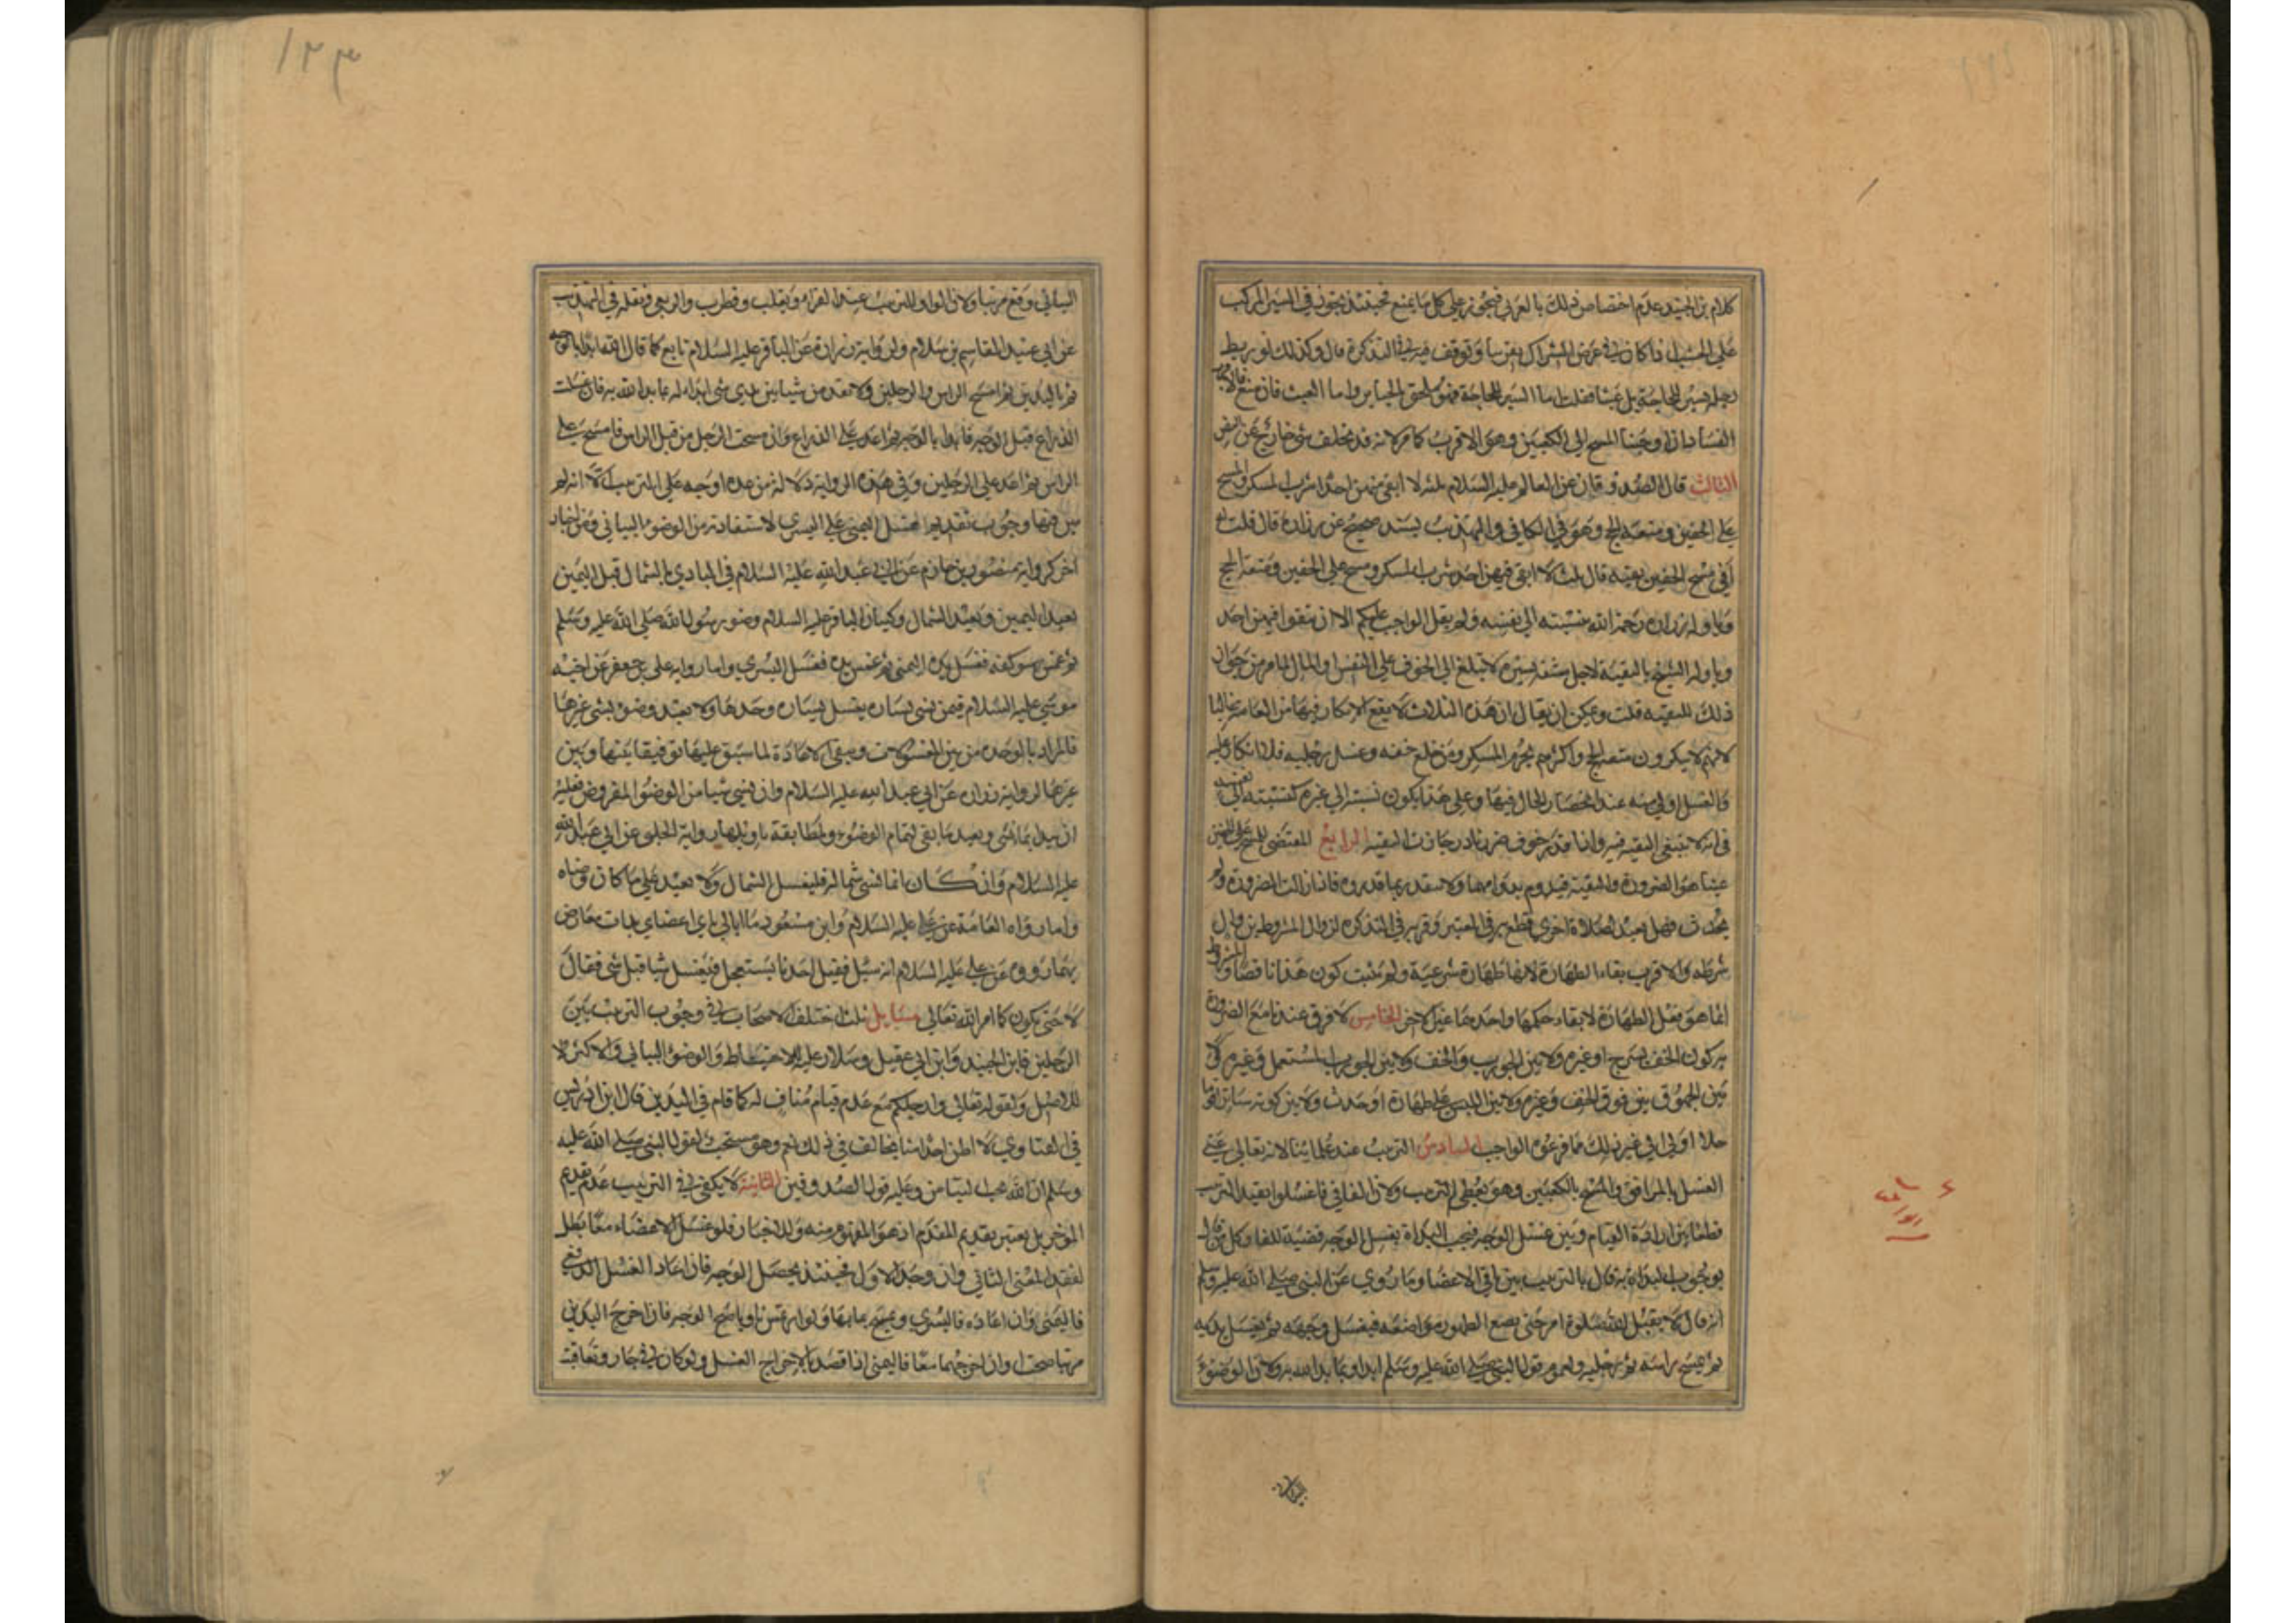 كلام بن الجنيد عدم اختصاص ذلك بالعربي فيجوز على كل ما يمنع فحينئذ يجوز في السير المركب
على الخشب اذا كان في عرض الشراك بعض ما وتوقف فيه في التذكرة قال وكذلك لو ربط
رجله بسير للحاجة بل عبثا قلت اما السير للحاجة فهو ملحق بالجباير واما العبث فان منع فالاكثر
الفساد ان اوجبنا المسح الى الكعبين وهو الاقرب كما مر لانه قد تخلف شئ خارج عن النص
الثالث قال الصدوق قال العالم عليه السلام ثلثة لا اتقى فيهن احدا شرب المسكر والمسح
على الخفين ومتعة الحج وهو في الكافي والتهذيب بسند صحيح عن زرارة قال قلت له
أفي مسح الخفين تقيه قال ثلث لا اتقى فيهن احدا شرب المسكر ومسح على الخفين ومتعة الحج
وتاوله زرارة رحمه الله بنسبته الى نفسه ولم يقل الواجب عليكم الا ان تتقوا فيهن احدا
وتاوله الشيخ بالتقية لاجل مشقة يسيرة لا تبلغ الى الخوف على النفس او المال لما مر من جواز
ذلك للتقيه قلت ويمكن ان يقال ان هذه الثلاث لا يقع الانكار فيها من العامة غالبا
لانهم لا ينكرون متعة الحج واكثرهم يحرم المسكر ومن خلع خفه وغسل رجليه فلا انكار عليه
والغسل اولى منه عند انحصار الحال فيهما وعلى هذا يكون نسبته الى غيره كنسبته الى نفسه
في انه لا ينبغى التقيه فيه واذا قدر خوف ضرر نادر جازت التقيه الرابع المقتضى للمسح على الخفين
عندنا هو الضرورة والتقية فيدوم بدوامهما ولا يتقدر بما قدروه فاذا زالت الضرورة ولم
يحدث فهل يعيد لصلاة اخرى قطع به في المعتبر وقربه في التذكرة لزوال المشروط بزوال
شرطه والاقرب بقاء الطهارة لانها طهارة شرعية ولم يثبت كون هذا ناقضا والمشروط
انما هو فعل الطهارة لا بقاء حكمها واحدهما غير الاخر الخامس لا فرق عندنا مع الضرورة
بين كون الخف بشرج او غيره ولا بين الجورب والخف ولا بين الجورب المستعمل وغيره ولا
بين الجرموق بين فوق الخف وغيره ولا بين اللبس على طهارة او حدث ولا بين كونه ساترا
حلالا او لا الى غير ذلك مما فرعوه الواجب السادس الترتيب عند علمائنا لانه تعالى غيى
الغسل بالمرافق والمسح بالكعبين وهو يعطى الترتيب ولان الفا في فاغسلوا يفيد الترتيب
قطعا بين ارادة القيام وبين غسل الوجه فيجب البداة بغسل الوجه قضية للفا وكل من قال
بوجوب البداة به قال بالترتيب بين باقي الاعضا وما روي عن النبي صلى الله عليه وسلم
انه قال لا يقبل الله صلوة امرئ حتى يضع الطهور مواضعه فيغسل وجهه ثم يغسل يديه
ثم يمسح براسه ثم رجليه ولعموم قول النبي صلى الله عليه وسلم ابداوا بما بدا الله به ولان الوضوء
البياني وقع مرتبا ولان الواو للترتيب عند الفراء وثعلب وقطرب والربعى ونقله في التهذيب
عن ابي عبيد القاسم بن سلام ولرواية زرارة عن الباقر عليه السلام تابع كما قال الله تعالى ابدا بالوجه
ثم باليدين ثم امسح الراس والرجلين ولا تقدمن شيا بين يدي شئ ابدا بما بدا الله به فان غسلت
الذراع قبل الوجه فابدا بالوجه ثم اعد على الذراع وان مسحت الرجل من قبل الراس فامسح على
الراس ثم اعد على الرجلين وفي هذه الرواية دلالة من عده اوجه على الترتيب الا انه لم
يبين فيها وجوب تقديم غسل اليمنى على اليسرى لاستفادته من الوضوء البياني ومن اخبار
اخر كرواية منصور بن حازم عن ابي عبد الله عليه السلام في البادي بالشمال قبل اليمين
يعيد اليمين ويعيد الشمال وكبيان الباقر عليه السلام وضوء رسول الله صلى الله عليه وسلم
ثم غمس كفه فغسل يده اليمنى ثم غمس يده فغسل اليسرى واما رواية على بن جعفر عن اخيه
موسى عليه السلام فيمن نسى يساره يغسل يساره وحدها ولا يعيد وضوء شئ غيرها
فالمراد بالوحده من بين المغسولات وينفى الاعادة لما سبق عليها توفيقا بينها وبين
غيرها لرواية زرارة عن ابي عبد الله عليه السلام وان نسى شيا من الوضوء المفروض فعليه
ان يبدا بما نسى ويعيد ما بقى لتمام الوضوء ولمطابقة تاويلها رواية الحلبى عن ابي عبد الله
عليه السلام وان كان انما نسى شماله فليغسل الشمال ولا يعيد على ما كان وضاه
واما رواه العامة عن على عليه السلام وابن مسعود ما ابالى باي اعضاي بدات معارض
بما روى عن على عليه السلام انه سئل فقيل احدنا يستعجل فيغسل شيا قبل شئ فقال
لا حتى يكون كما امر الله تعالى مسايل ثلث اختلف الاصحاب في وجوب الترتيب بين
الرجلين فابن الجنيد وابن ابي عقيل وسلار عليه للاحتياط والوضوء البياني والاكثر لا
للاصل ولقوله تعالى وارجلكم مع عدم قيام مناف له كما قام في اليدين قال ابن ادريس
في الفتاوي لا اظن احدا منا يخالف في ذلك نعم وهو مستحب لقول النبي صلى الله عليه
وسلم ان الله يحب التيامن وعليه قول الصدوقين الثانية لا يكفى في الترتيب عدم تقديم
المؤخر بل يعتبر تقديم المقدم اذ هو المفهوم منه وللاخبار فلو غسل الاعضاء معا بطل
لفقد المعنى الثاني وان وجد الاول فحينئذ يحصل الوجه فان اعاد الغسل الدفعى
فاليمنى وان اعاده فاليسرى ويمسح بمائها ولو ارتمس ناويا صح الوجه فان اخرج اليدين
مرتبا صحتا وان اخرجهما معا فاليمنى اذا قصد بالاخراج الغسل ولو كان في جار وتعاقبت